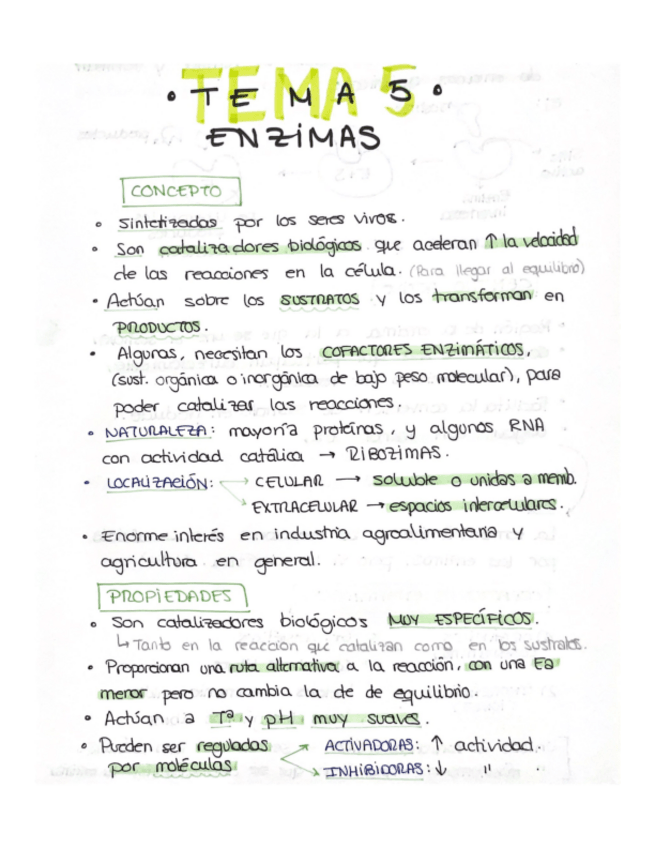 • TEMA 5 •
ENZIMAS
CONCEPTO
• Sintetizadas por los seres vivos.
• Son catalizadores biológicos que aceleran ↑ la velocidad
de las reacciones en la célula. (Para llegar al equilibro)
• Actúan sobre los SUSTRATOS y los transforman en
PRODUCTOS.
• Algunas, necesitan los COFACTORES ENZIMÁTICOS,
(sust. orgánica o inorgánica de bajo peso molecular), para
poder catalizar las reacciones.
• NATURALEZA: mayoría proteínas, y algunos RNA
con actividad catálica → RIBOZIMAS.
• LOCALIZACIÓN: → CELULAR → soluble o unidas a memb.
→ EXTRACELULAR → espacios intercelulares.
• Enorme interés en industria agroalimentaria y
agricultura en general.
PROPIEDADES
• Son catalizadores biológicos MUY ESPECÍFICOS.
↳ Tanto en la reacción que catalizan como en los sustratos.
• Proporcionan una ruta alternativa a la reacción, con una Ea
menor pero no cambia la de de equilibrio.
• Actúan a Tª y pH muy suaves.
• Pueden ser reguladas → ACTIVADORAS: ↑ actividad.
por moléculas → INHIBIDORAS: ↓ " .